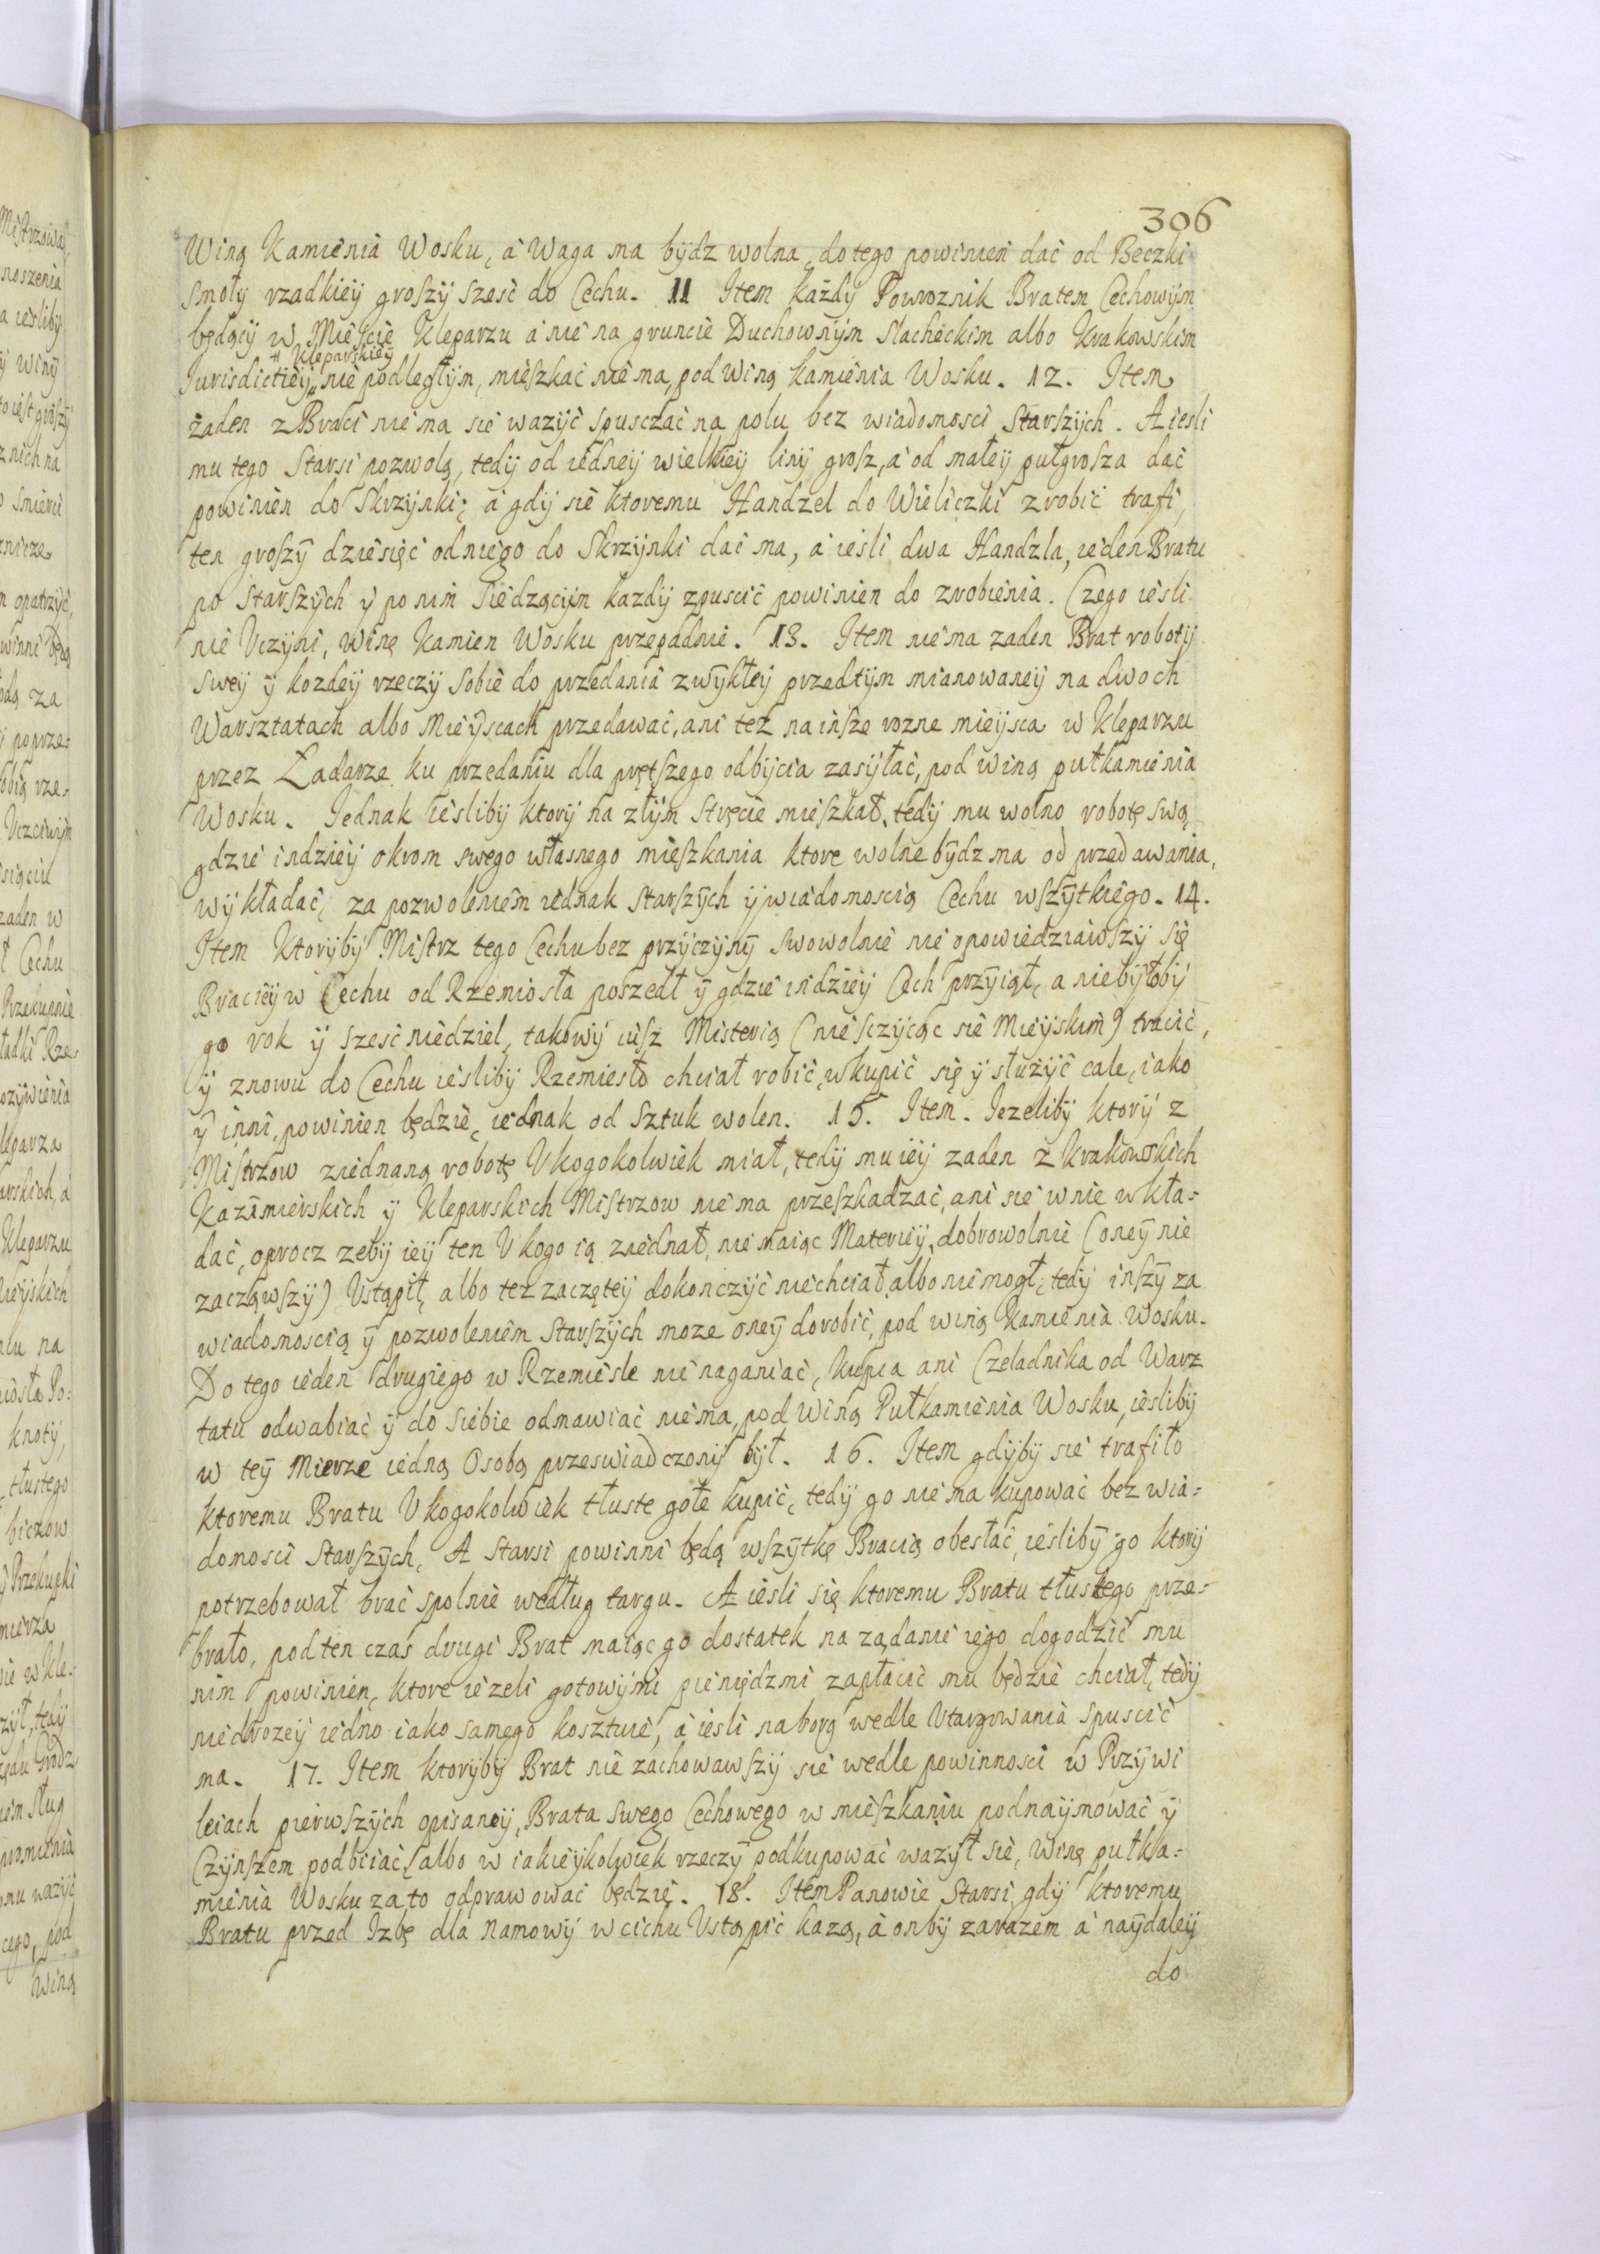 306
Winą Kamienia Wosku, a Waga ma bydz wolna, do tego powinien dać od Beczki
smoły rzadkiey groszy szesć do Cechu. 11 Item każdy Powroznik Bratem Cechowym
będący w Mieście Kleparzu a nie na gruncie Duchownym Slacheckim albo Krakowskim
Jurisdictiey Kleparskiey nie podległym, mieszkać nie ma, pod winą kamienia Wosku. 12. Item
żaden z Braci nie ma sie wazyć spusczać na polu bez wiadomosci Starszych. A iesli
mu tego Starsi pozwolą, tedy od iedney wielkiey liny grosz, a od małey pułgrosza dać
powinien do Skrzynki; a gdy sie ktoremu Handzel do Wieliczki zrobić trafi,
ten groszy dziesięć od niego do Skrzynki dać ma, a iesli dwa Handzla, ieden Bratu
po Starszych y po nim Siedzącym kazdy zpuscić powinien do zrobienia. Czego iesli
nie Vczyni, winę kamien Wosku przepadnie. 13. Item nie ma zaden Brat roboty
swey y kozdey rzeczy sobie do przedania zwykłey przedtym mianowaney na dwoch
Warsztatach albo mieyscach przedawać, ani też na insze rozne mieysca w Kleparzu
przez Ładarze ku przedaniu dla prętszego odbycia zasyłać, pod winą pułkamienia
Wosku. Jednak iesliby ktory na złym stręcie mieszkał, tedy mu wolno robotę swą
gdzie indziey okrom swego własnego mieszkania ktore wolne bydz ma od przedawania,
wykładać, za pozwoleniem iednak Starszych y wiadomoscią Cechu wszytkiego. 14.
Item Ktoryby Mistrz tego Cechu bez przyczyny swowolnie nie opowiedziawszy się
Braciey w Cechu od Rzemiosła poszedł y gdzie indziey Cech przyiął, a niebyłoby
go rok y szesć niedziel, takowy iusz Misterią (nie sczycąc sie Mieyskim) tracić,
y znowu do Cechu iesliby Rzemiesło chciał robić, wkupić się y słuzyć cale, iako
y inni, powinien będzie, iednak od Sztuk wolen. 15. Item. Iezeliby ktory z
Mistrzow ziednaną robotę Vkogokolwiek miał, tedy mu iey zaden z Krakowskich
Kazimierskich y Kleparskich Mistrzow nie ma przeszkadzać, ani sie w nie wkła-
dać, oprocz zeby iey ten Vkogo ią ziednał, nie maiąc Materiey, dobrowolnie (oney nie
zacząwszy) Vstąpił, albo też zaczętey dokonczyć niechciał albo nie mogł, tedy inszy za
wiadomoscią y pozwoleniem Starszych moze oney dorobić, pod winą kamienia Wosku.
Do tego ieden drugiego w Rzemiesle nie naganiać, kupca ani Czeladnika od Warz
tatu odwabiać y do siebie odmawiać niema, pod winą Pułkamienia Wosku, iesliby
w tey Mierze iedną Osobą przeswiadczony był. 16. Item gdyby sie trafiło
ktoremu Bratu Vkogokolwiek tłuste gołe kupić, tedy go nie ma kupować bez wia-
domosci Starszych, A Starsi powinni będą wszytkę Bracią obesłać, iesliby go ktory
potrzebował brać spolnie według targu. A iesli się ktoremu Bratu tłustego prze-
brało, pod ten czas drugi Brat maiąc go dostatek na ządanie iego dogodzić mu
nim powinien, ktore iezeli gotowymi pieniędzmi zapłacić mu będzie chciał, tedy
niedrozey iedno iako samego kosztuie, a iesli na borg wedle Vtargowania spuscić
ma. 17. Item ktoryby Brat nie zachowawszy sie wedle powinnosci w Przywi
leiach pierwszych opisaney, Brata swego Cechowego w mieszkaniu podnaymować y
Czynszem podbiiać, albo w iakieykolwiek rzeczy podkupować wazył sie, winę pułka-
mienia Wosku za to odprawować będzie. 18. Item Panowie Starsi, gdy ktoremu
Bratu przed Izbę dla namowy w cichu Vstąpić kazą, a onby zarazem a naydaley
do